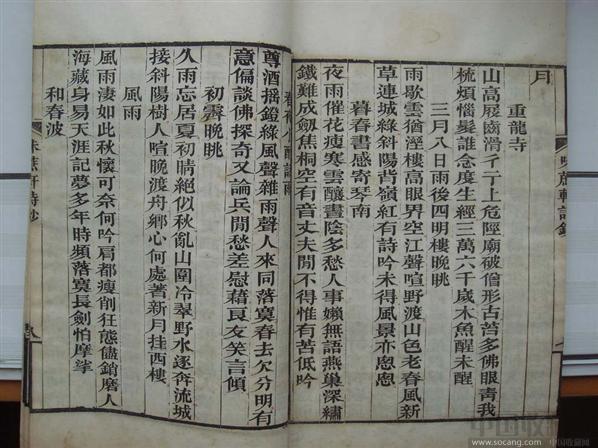 月
重龍寺
山高屐齒滑彳亍上危陘廟破僧形古苔多佛眼青我
梳煩惱髮誰念度生經三萬六千歲木魚醒未醒
三月八日雨後四明樓晚眺
雨歇雲猶溼樓高眼界空江聲喧野渡山色老春風新
草連城綠斜陽背嶺紅有詩吟未得風景亦悤悤
暮春書感寄琴南
夜雨催花瘦寒雲釀晝陰多愁人事嬾無語燕巢深繡
鐵難成劒焦桐空有音丈夫閒不得惟有苦低吟
春夜小酌話雨
尊酒搖鐙綠風聲雜雨聲人來同落寞春去欠分明有
意偏談佛探奇又論兵閒愁差慰藉良友笑言傾
初霽晚眺
久雨忘居夏初晴絕似秋亂山圍冷翠野水逐奔流城
接斜陽樹人喧晚渡舟鄉心何處著新月挂西樓
風雨
風雨淒如此秋懷可奈何吟肩都瘦削狂態儘銷磨人
海藏身易天涯記夢多年時頻落寞長劍怕摩挲
和春波
中国收藏
www.socang.com 中国收藏网